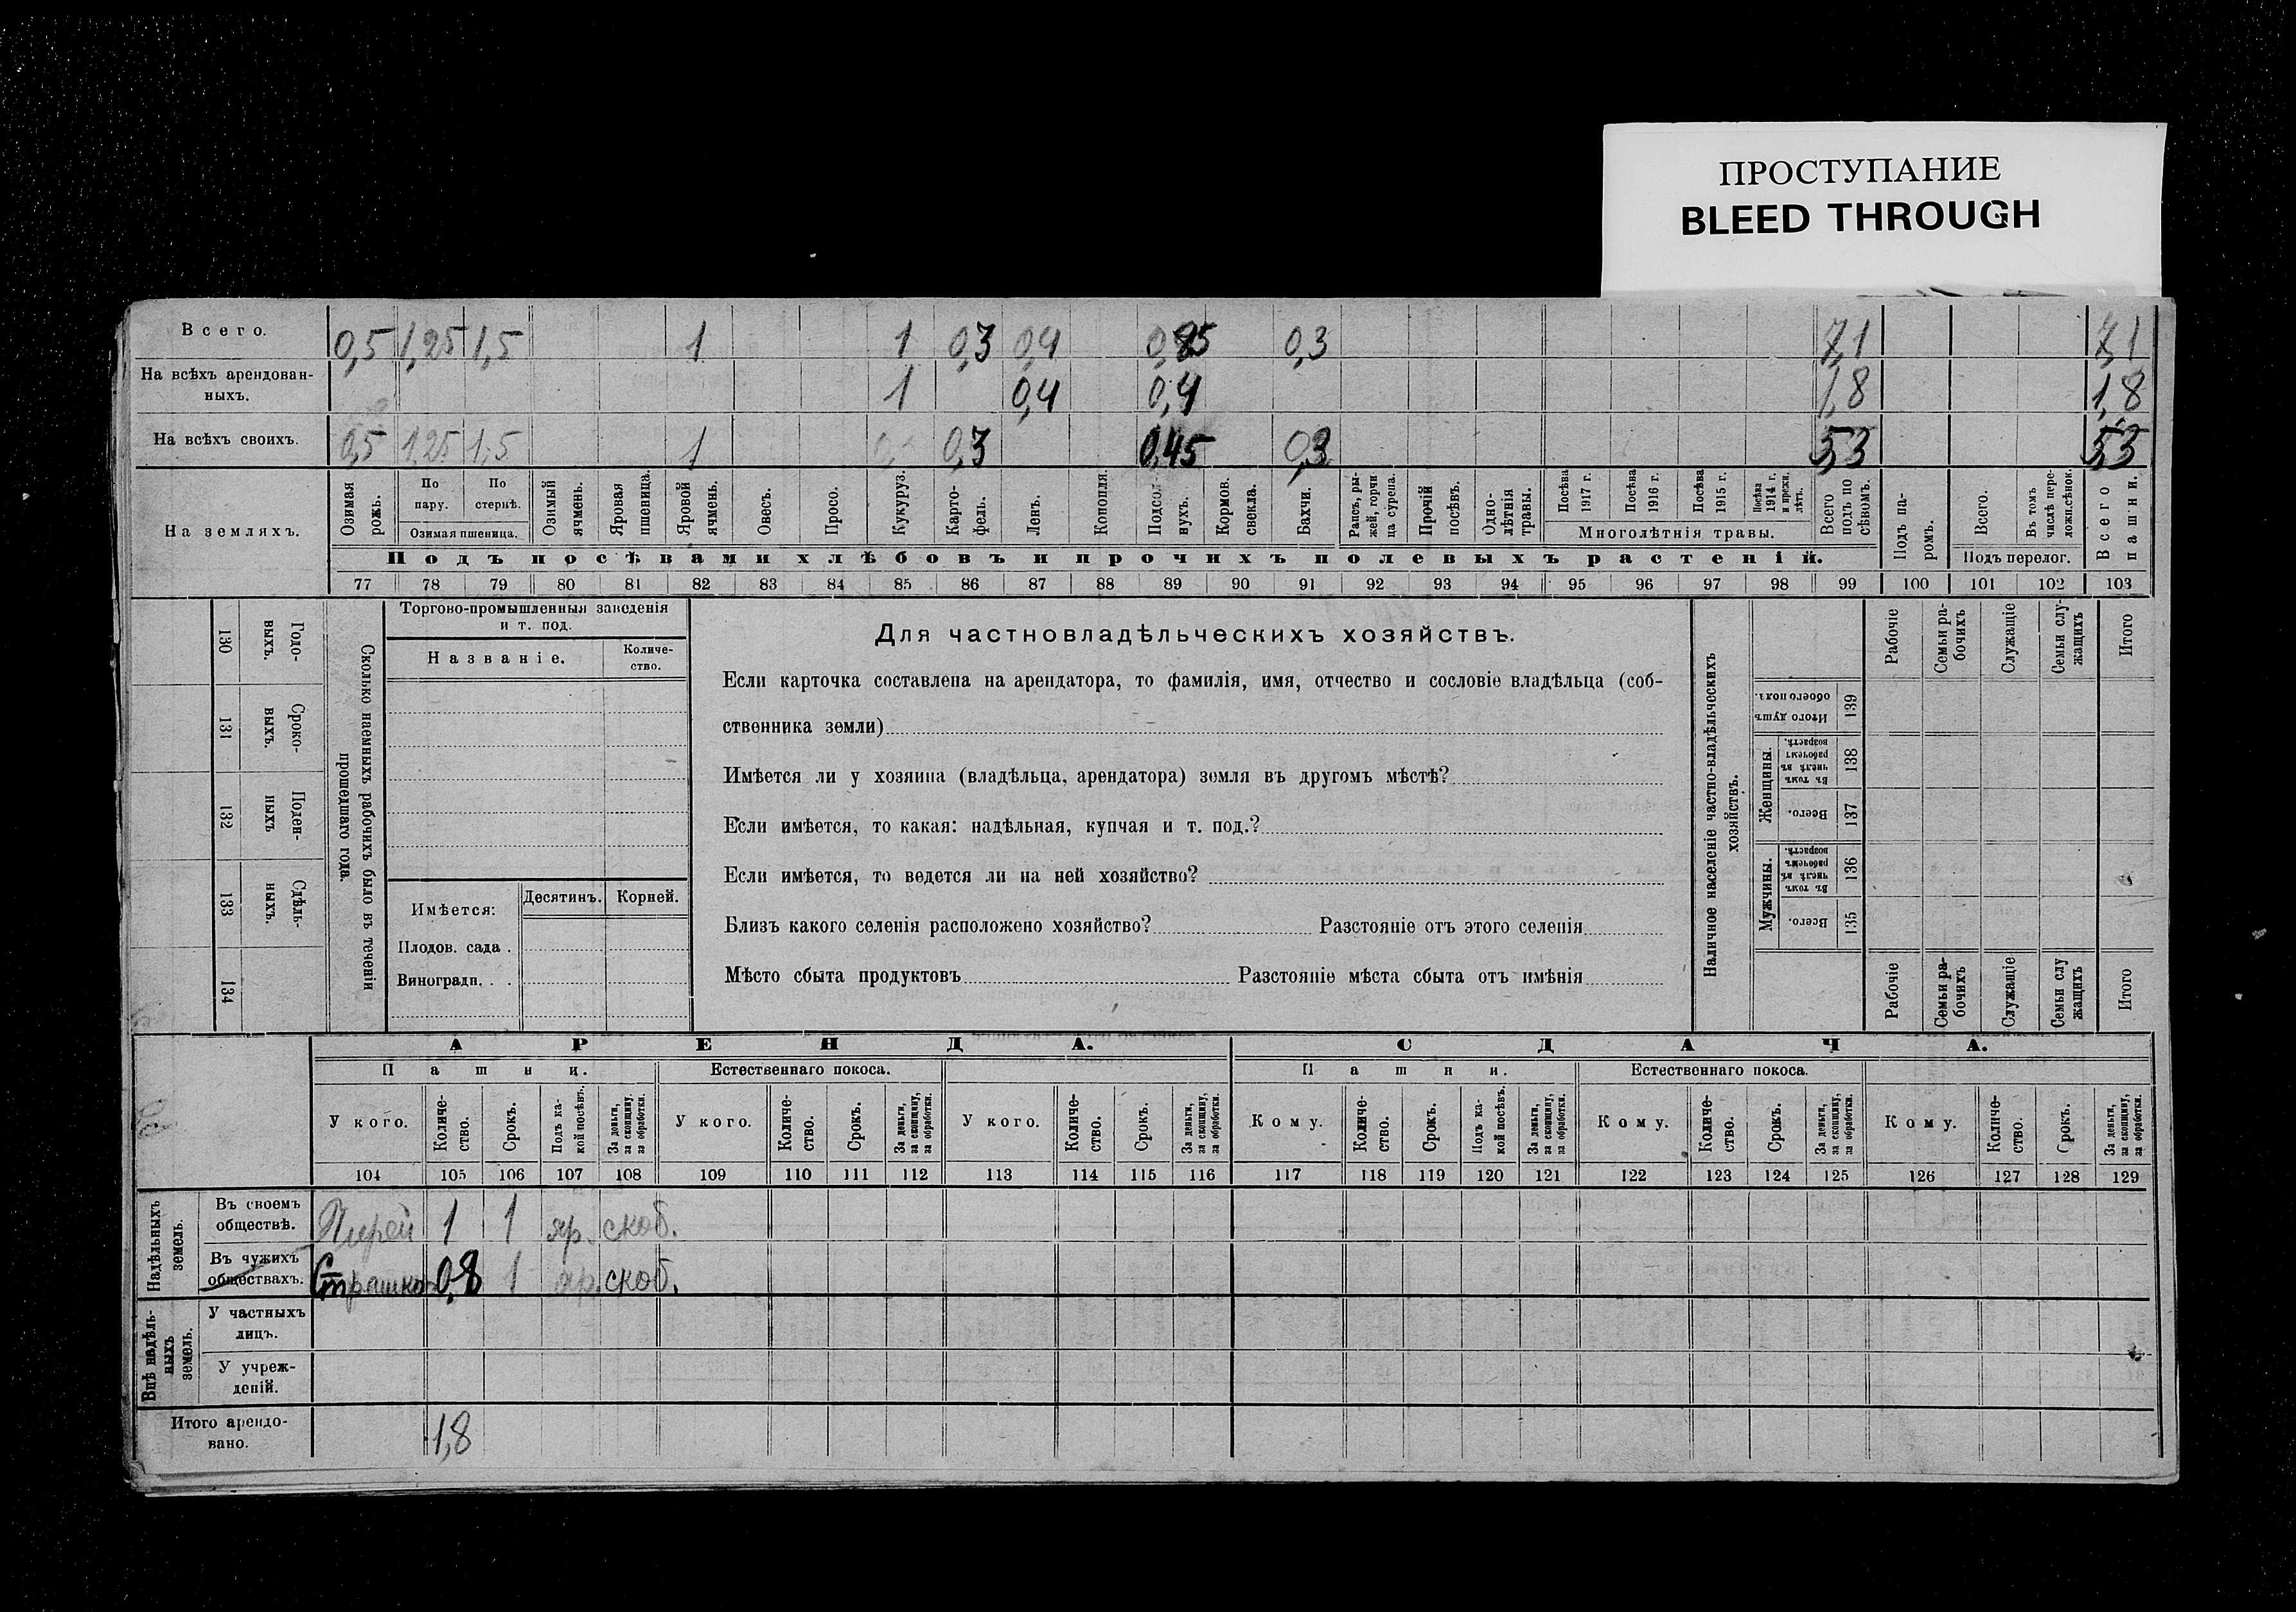 ПРОСТУПАНИЕ
BLEED THROUGH
Всего. 0,5 1,25 1,5 1 1 0,3 0,4 0,85 0,3 7,1 7,1
На всѣхъ арендован-
ныхъ. 1 0,4 0,4 1,8 1,8
На всѣхъ своихъ. 0,5 1,25 1,5 1 0,3 0,45 0,3 5,3 5,3
На земляхъ.
Озимая рожь.
По пару.
По стернѣ.
Озимая пшеница.
Озимый ячмень.
Яровая пшеница.
Яровой ячмень.
Овесъ.
Просо.
Кукуруз.
Карто-
фель.
Ленъ.
Конопля.
Подсол-
нухъ.
Кормов. свекла.
Бахчи.
Рапсъ, ры-
жей, горчи
ца сурепа.
Прочій посѣвъ.
Одно-
лѣтнія травы.
Посѣва 1917 г.
Посѣва 1916 г.
Посѣва 1915 г.
Посѣва 1914 г. и прежн. лѣтъ.
Многолѣтнія травы.
Всего подъ по
сѣвомъ.
Подъ посѣвами хлѣбовъ и прочихъ полевыхъ растеній.
Подъ па-
ромъ.
Всего.
Въ томъ числѣ пере-
ложн.сѣнок.
Подъ перелог.
Всего пашни.
77 78 79 80 81 82 83 84 85 86 87 88 89 90 91 92 93 94 95 96 97 98 99 100 101 102 103
130 Годо-
выхъ.
131 Сроко-
выхъ.
132 Поден-
ныхъ
133 Сдѣль-
ныхъ.
134
Сколько наемныхъ рабочихъ было въ теченіи
прошедшаго года.
Торгово-промышленныя заведенія
и т. под.
Названіе.
Количе-
ство.
Имѣется:
Десятинъ.
Корней.
Плодов. сада .
Виноградн. . .
Для частновладѣльческихъ хозяйствъ.
Если карточка составлена на арендатора, то фамилія, имя, отчество и сословіе владѣльца (соб-
ственника земли)
Имѣется ли у хозяина (владѣльца, арендатора) земля въ другомъ мѣстѣ?
Если имѣется, то какая: надѣльная, купчая и т. под.?
Если имѣется, то ведется ли на ней хозяйство?
Близъ какого селенія расположено хозяйство? Разстояніе отъ этого селенія
Мѣсто сбыта продуктовъ Разстояніе мѣста сбыта отъ имѣнія
Наличное населеніе частно-владѣльческихъ
хозяйствъ.
Рабочіе
Семьи ра-
бочихъ
Служащіе
Семьи слу-
жащихъ
Итого
Итого душъ обоего пола. 139
Женщины.
Въ томъ числѣ въ рабочемъ возрастѣ. 138
Всего. 137
Мужчины.
Въ томъ числѣ въ рабочемъ возрастѣ. 136
Всего. 135
Рабочіе
Семьи ра-
бочихъ
Служащіе
Семьи слу
жащихъ
Итого
АРЕНДА. СДАЧА.
Пашни. Естественнаго покоса. Пашни. Естественнаго покоса.
У кого.
Количе-
ство.
Срокъ.
Подъ ка-
кой посѣвъ.
За деньги, за скопщину, за обработки.
У кого.
Количе-
ство.
Срокъ.
За деньги, за скопщину, за обработки.
У кого.
Количе-
ство.
Срокъ.
За деньги, за скопщину, за обработки.
Кому.
Количе-
ство.
Срокъ.
Подъ ка-
кой посѣвъ.
За деньги, за скопщину, за обработки.
Кому.
Количе-
ство.
Срокъ.
За деньги, за скопщину, за обработки.
Кому.
Количе-
ство.
Срокъ.
За деньги, за скопщину, за обработки.
104 105 106 107 108 109 110 111 112 113 114 115 116 117 118 119 120 121 122 123 124 125 126 127 128 129
Надѣльныхъ
земель.
Въ своемъ
обществѣ. 1 1 яр. скоп.
Въ чужихъ
обществахъ. 0,8 1 яр. скоп.
Внѣ надѣль-
ныхъ
земель.
У частныхъ
лицъ.
У учреж-
деній.
Итого арендо-
вано. 1,8